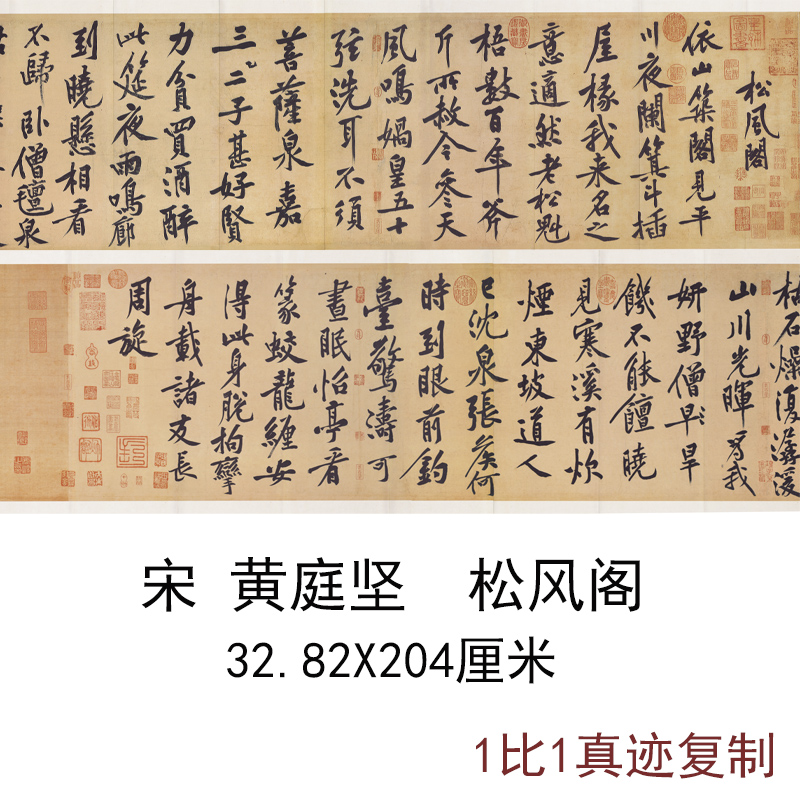 松風閣
依山築閣見平
川夜闌箕斗插
屋椽我来名之
意適然老松魁
梧數百年斧
斤所赦今參天
風鳴媧皇五十
弦洗耳不須
菩薩泉嘉
三二子甚好賢
力貧買酒醉
此筵夜雨鳴廊
到曉懸相看
不歸卧僧氈泉
枯石燥復潺湲
山川光暉為我
妍野僧早旱
饑不能饘曉
見寒溪有炊
煙東坡道人
已沈泉張侯何
時到眼前釣
臺驚濤可
晝眠怡亭看
篆蛟龍纏安
得此身脫拘攣
舟載諸友長
周旋
宋 黄庭坚 松风阁
32.82X204厘米
1比1真迹复制